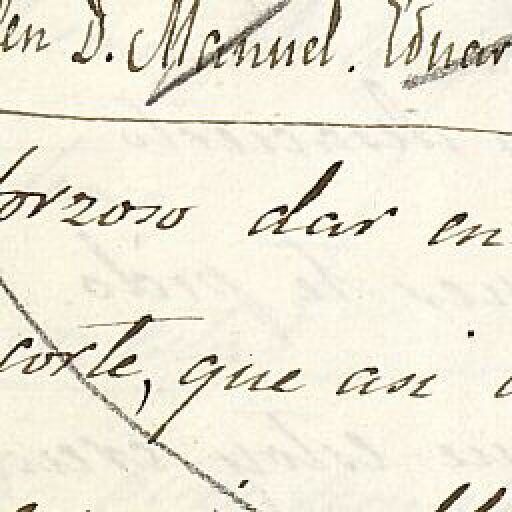 en D. Manuel. Eduar
forzoso dar en
corte, que asi